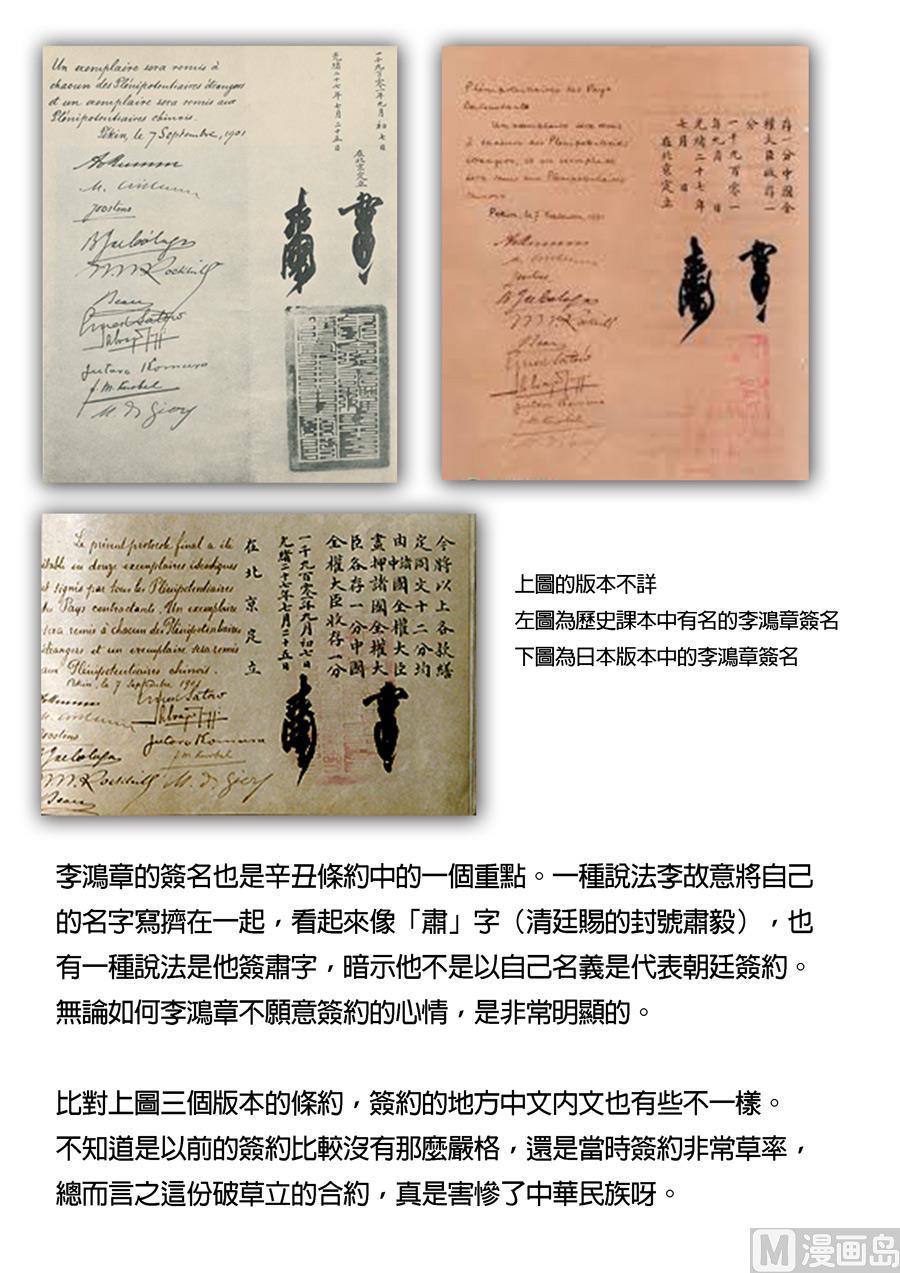 Un exemplaire sera remis à
chacun des Plénipotentiaires étrangers
et un exemplaire sera remis aux
Plénipotentiaires chinois.
Pékin, le 7 Septembre, 1901
Joostens
W. W. Rockhill
Beau
Ernest Satow
Salvago Raggi
Jutaro Komura
F. M. Knobel
M. de Giers
一千九百零一年九月初七日
光緒二十七年七月二十五日
在北京定立
Plénipotentiaires des Pays
Contractants
Un exemplaire sera remis
à chacun des Plénipotentiaires
étrangers, et un exemplaire
sera remis aux Plénipotentiaires
chinois.
存一分中國全
權大臣收存一
分
一千九百零一
年九月 日
光緒二十七年
七月 日
在北京定立
Le présent protocole final a été
établi en douze exemplaires identiques
et signés par tous les Plénipotentiaires
des Pays contractants. Un exemplaire
sera remis à chacun des Plénipotentiaires
étrangers et un exemplaire sera remis
aux Plénipotentiaires chinois.
Pékin, le 7 Septembre 1901
Ernest Satow
Salvago Raggi
Jutaro Komura
F. M. Knobel
Joostens
W. W. Rockhill
M. de Giers
Beau
今將以上各款繕
定同文十二分均
由諸國全權大臣
畫押諸國全權大
臣各存一分中國
全權大臣收存一分
一千九百零一年九月初七日
光緒二十七年七月二十五日
在北京定立
上圖的版本不詳
左圖為歷史課本中有名的李鴻章簽名
下圖為日本版本中的李鴻章簽名
李鴻章的簽名也是辛丑條約中的一個重點。一種說法李故意將自己
的名字寫擠在一起，看起來像「肅」字（清廷賜的封號肅毅），也
有一種說法是他簽肅字，暗示他不是以自己名義是代表朝廷簽約。
無論如何李鴻章不願意簽約的心情，是非常明顯的。
比對上圖三個版本的條約，簽約的地方中文內文也有些不一樣。
不知道是以前的簽約比較沒有那麼嚴格，還是當時簽約非常草率，
總而言之這份破草立的合約，真是害慘了中華民族呀。
M 漫画岛